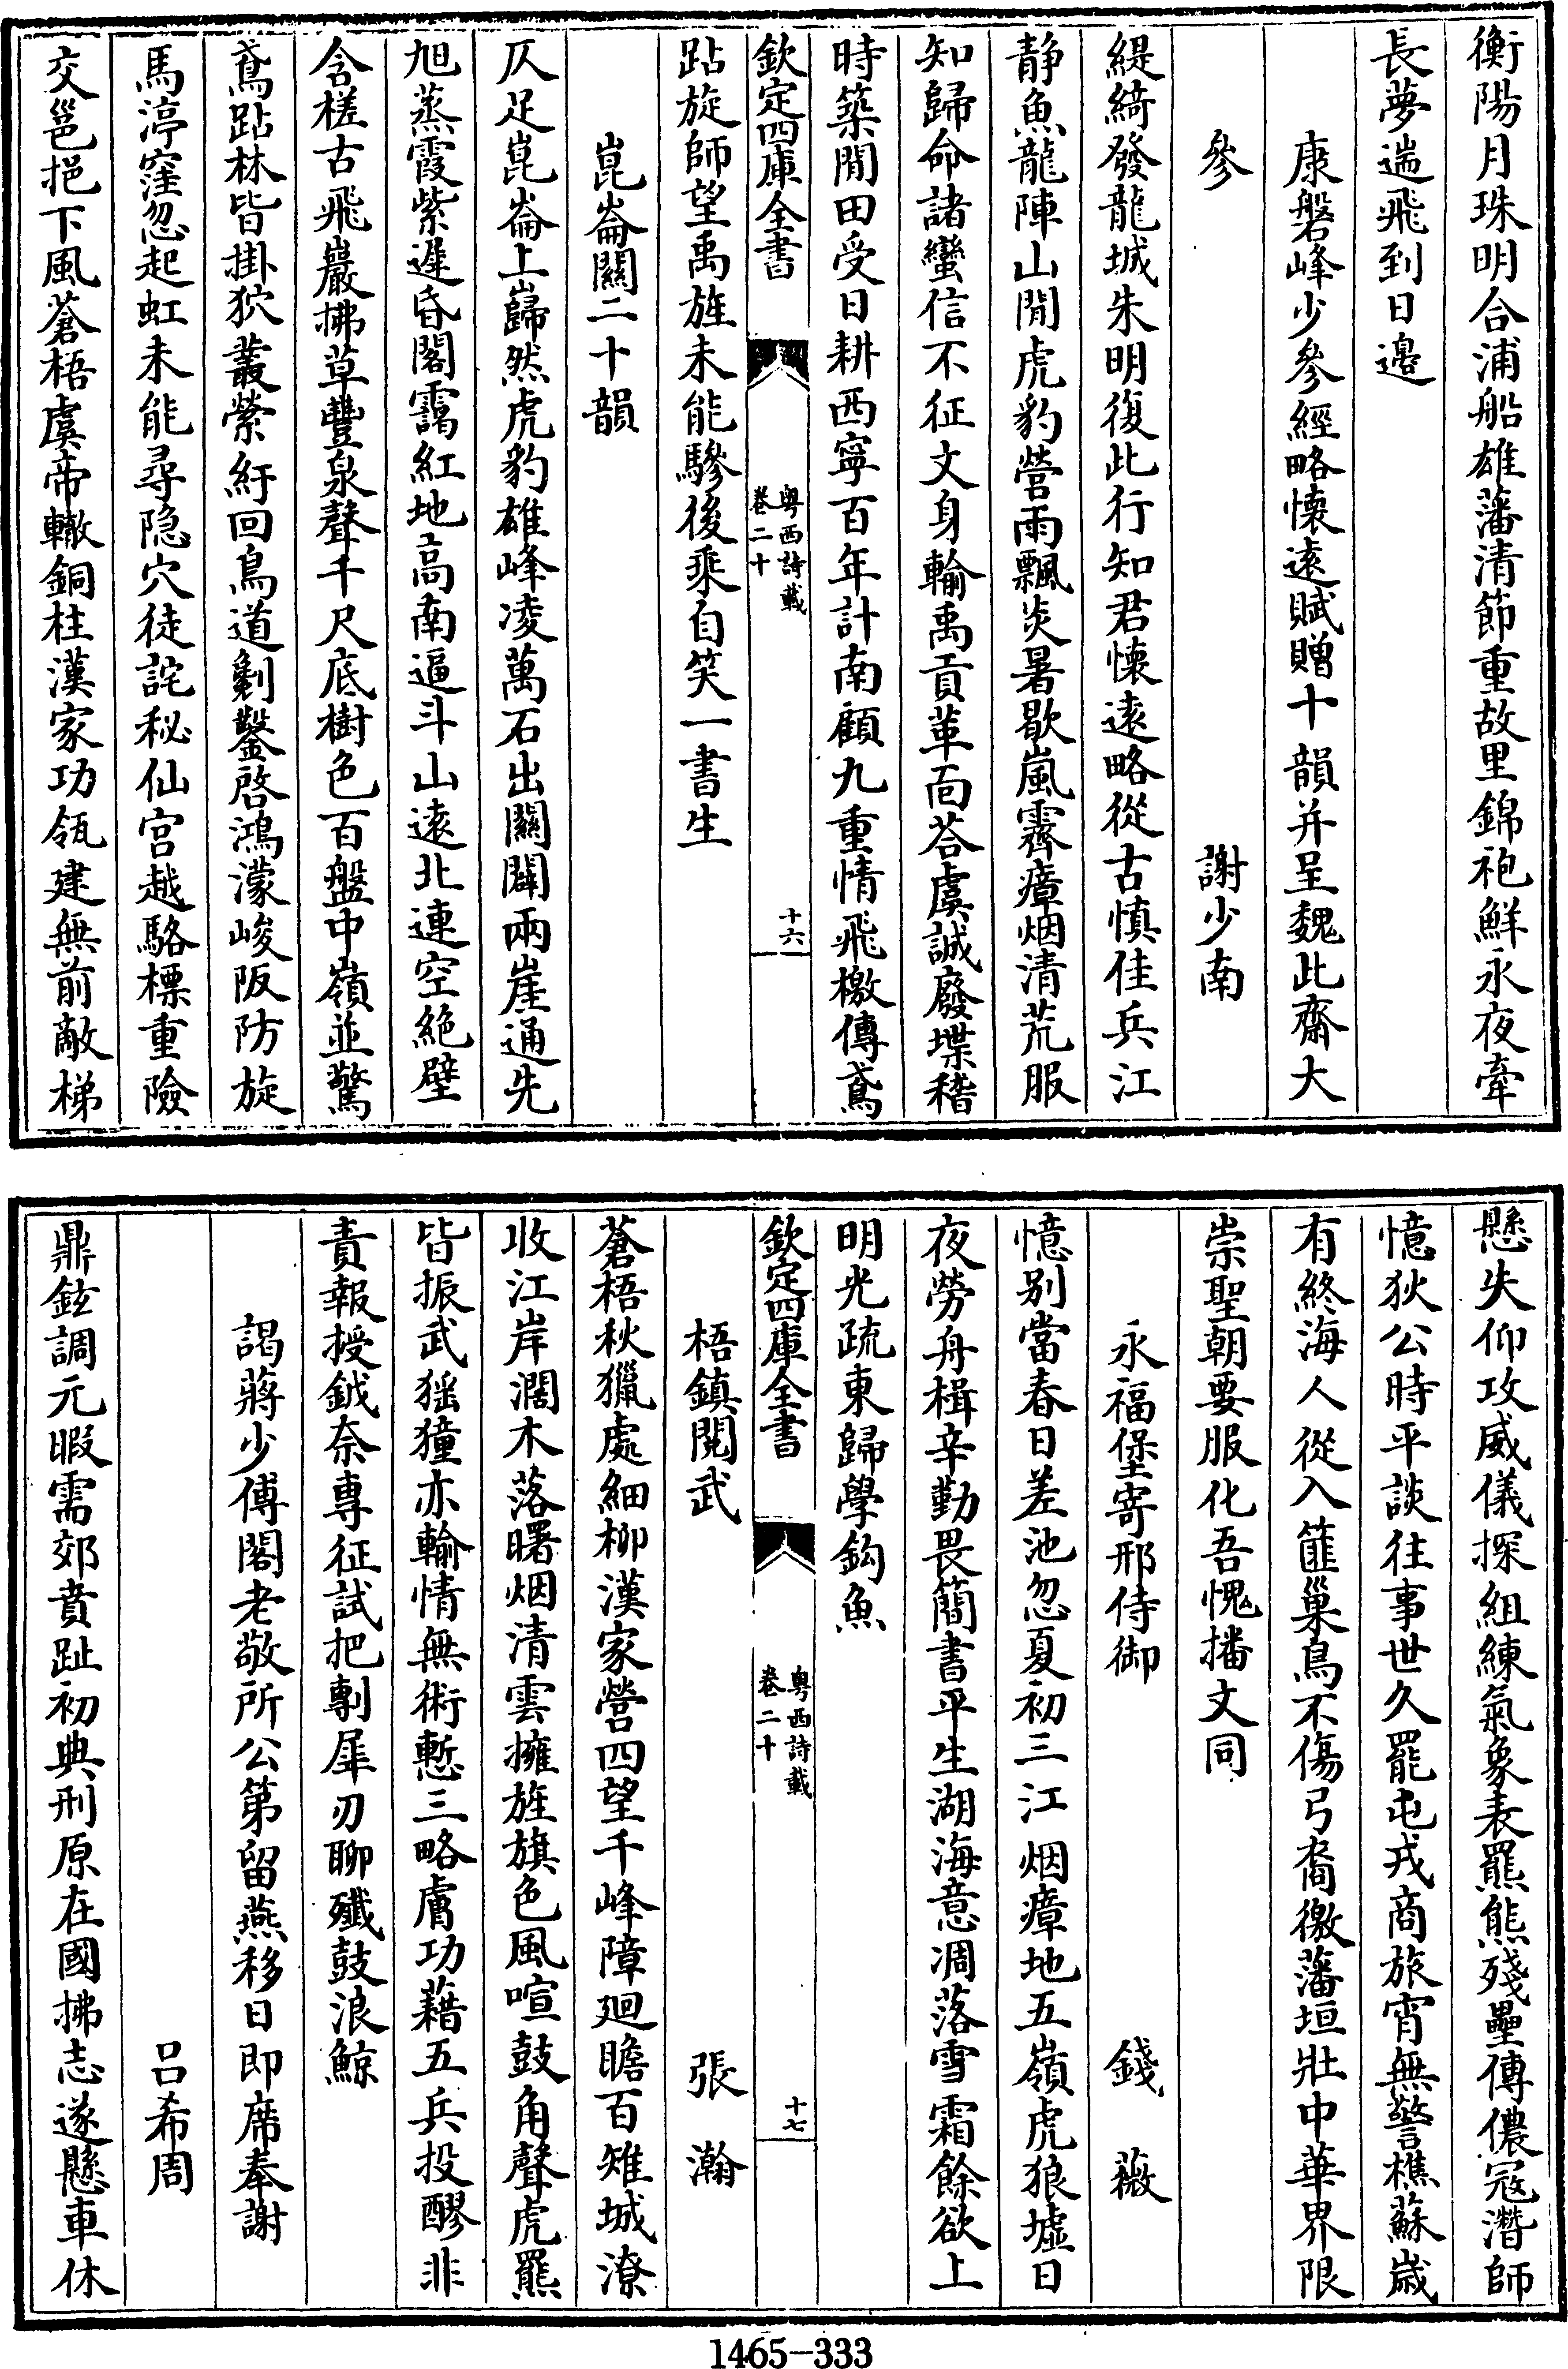 衡陽月珠明合浦船雄藩清節重故里錦袍鮮永夜牽
長夢遄飛到日邊
康磐峰少參經略懷遠賦贈十韻并呈魏此齋大
參　謝少南
緹綺發龍城朱明復此行知君懷遠略從古慎佳兵江
静魚龍陣山閒虎豹營雨飄炎暑歇嵐霽瘴烟清荒服
知歸命諸蠻信不征文身輸禹貢革面荅虞誠廢堞稽
時築閒田受日耕西寧百年計南顧九重情飛檄傳鳶
欽定四庫全書　粤西詩載卷二十　十六
跕旋師望禹旌未能驂後乘自笑一書生
崑崙關二十韻
仄足崑崙上巋然虎豹雄峰凌萬石出關闢兩崖通先
旭蒸霞紫遲昏閣靄紅地高南逼斗山遠北連空絶壁
含槎古飛巖拂草豐泉聲千尺底樹色百盤中嶺並驚
鳶跕林皆掛狖叢縈紆回鳥道剿鑿啓鴻濛峻阪防旋
馬渟窪忽起虹未能尋隐穴徒詫秘仙宫越駱標重險
交邕挹下風蒼梧虞帝轍銅柱漢家功瓴建無前敵梯
懸失仰攻威儀探組練氣象表羆熊殘壘傳儂冦潛師
憶狄公時平談往事世久罷屯戎商旅宵無警樵蘇歲
有終海人從入篚巢鳥不傷弓裔徼藩垣壯中華界限
崇聖朝要服化吾愧播文同
永福堡寄邢侍御　錢薇
憶别當春日差池忽夏初三江烟瘴地五嶺虎狼墟日
夜勞舟楫辛勤畏簡書平生湖海意凋落雪霜餘欲上
明光疏東歸學鈎魚
欽定四庫全書　粤西詩載卷二十　十七
梧鎮閲武　張瀚
蒼梧秋獵處細柳漢家營四望千峰障廻瞻百雉城潦
收江岸濶木落曙烟清雲擁旌旗色風喧鼓角聲虎羆
皆振武猺獞亦輸情無術慙三略膚功藉五兵投醪非
責報授鉞奈專征試把剸犀刃聊殲鼓浪鯨
謁蔣少傅閣老敬所公第留燕移日即席奉謝
吕希周
鼎鉉調元暇需郊賁趾初典刑原在國拂志遂懸車休
1465-333